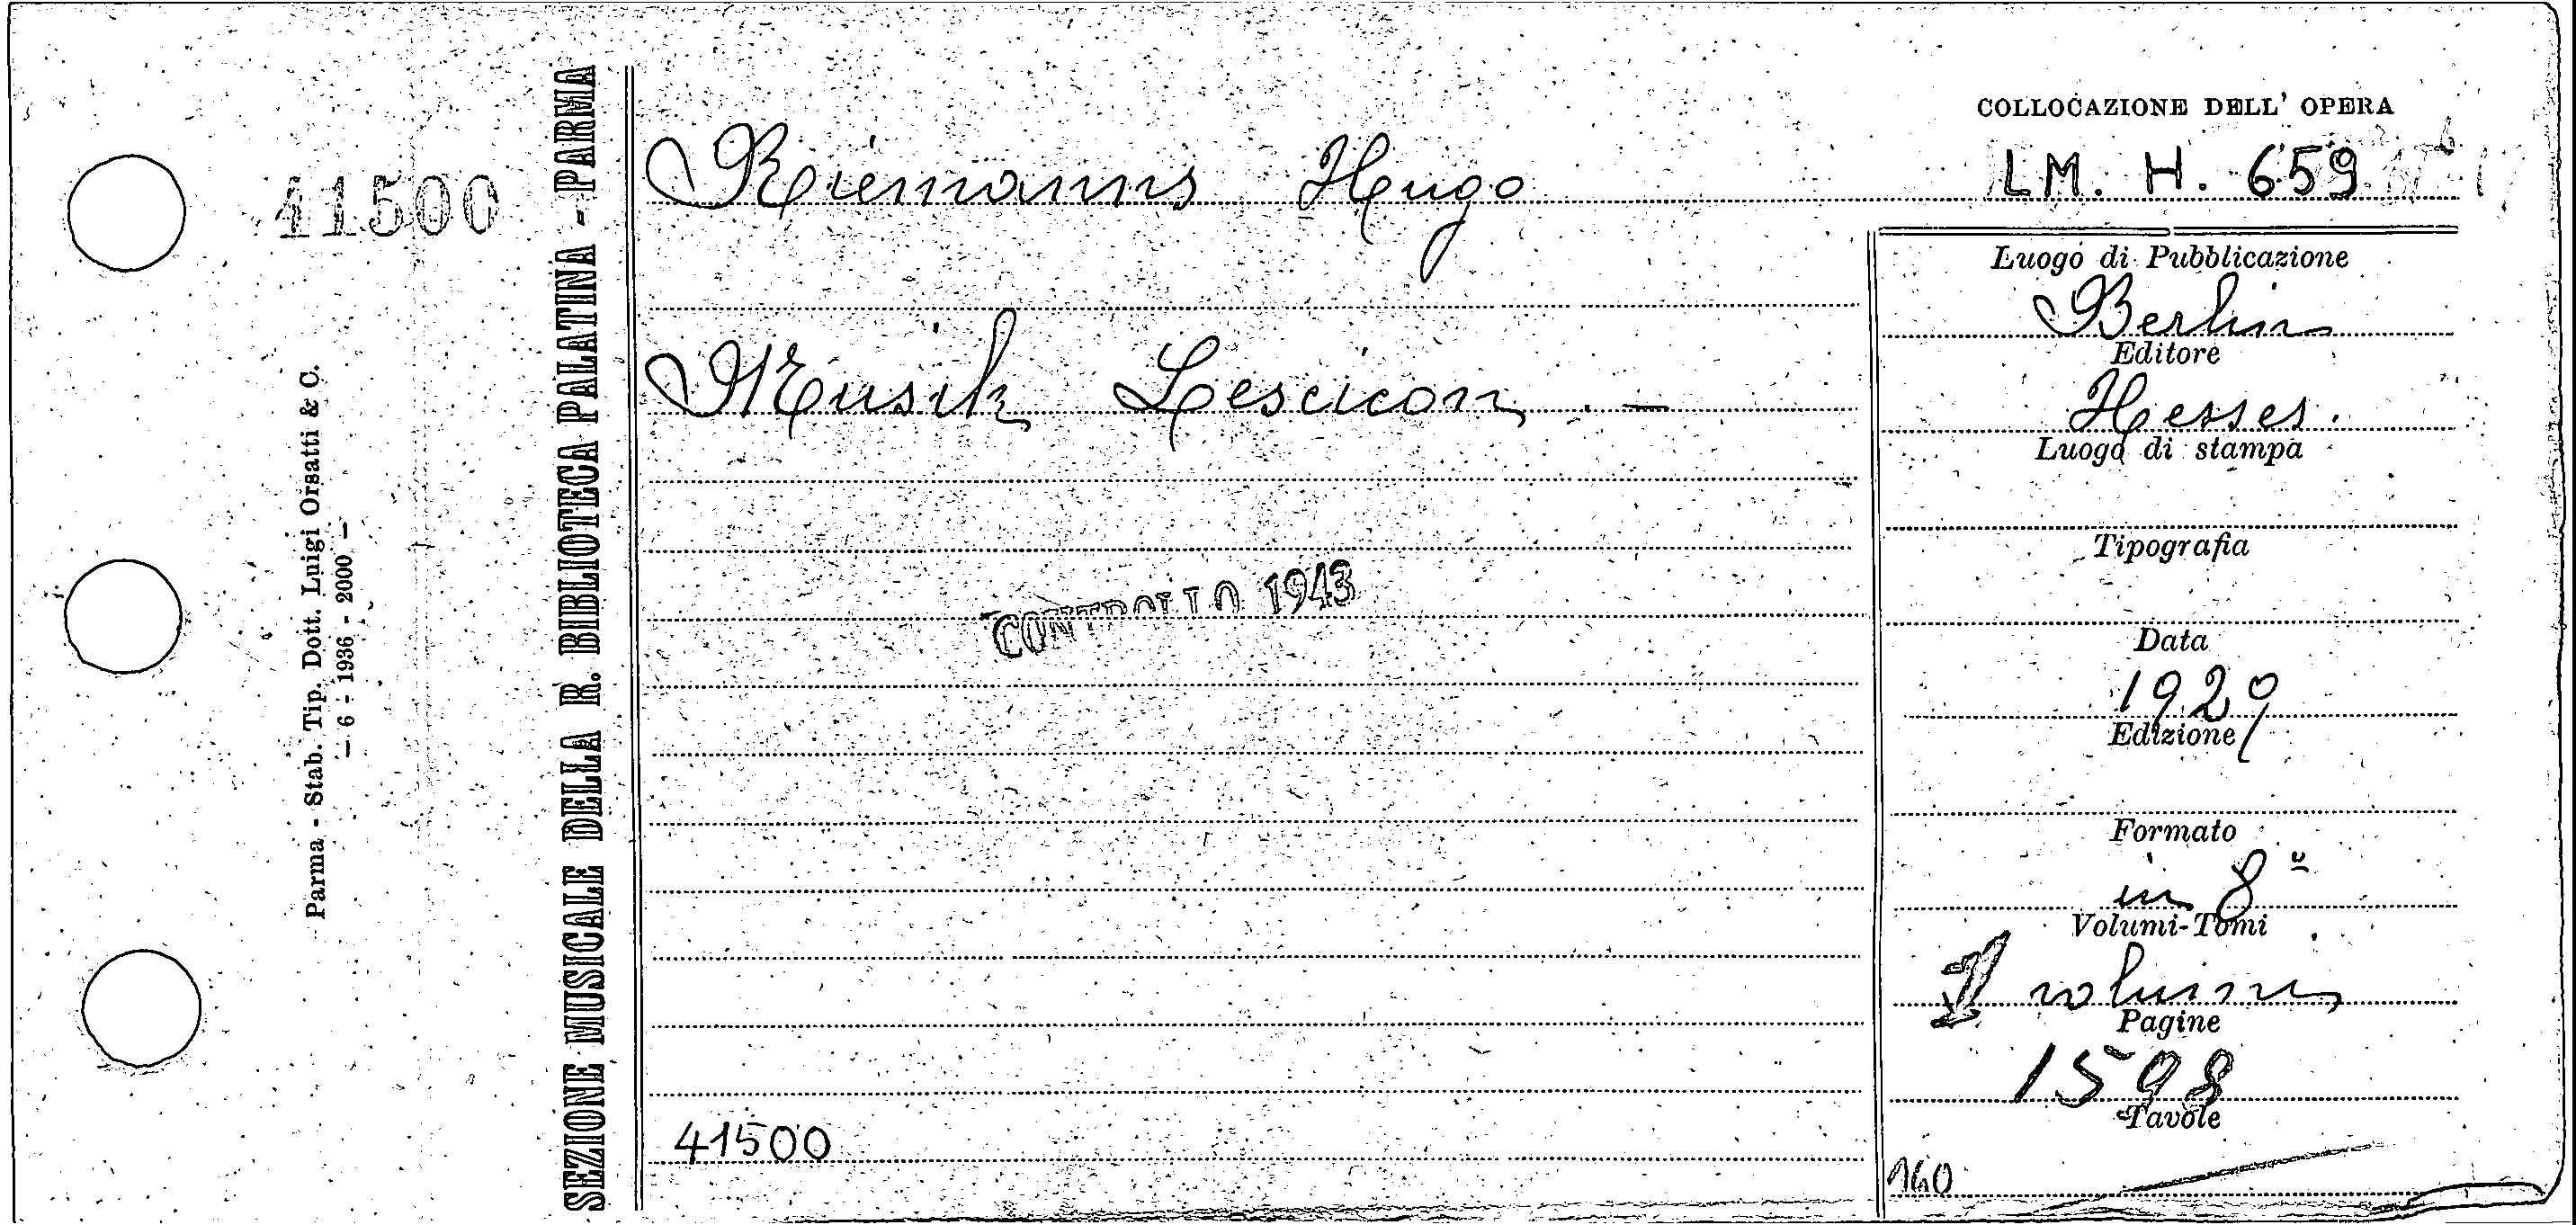 41500
Parma - Stab. Tip. Dott. Luigi Orsatti & C.
— 6 - 1936 - 2000 —
SEZIONE MUSICALE DELLA R. BIBLIOTECA PALATINA - PARMA
Riemanns Hugo
Musik Lescicon . —
CONTROLLO 1943
41500
COLLOCAZIONE DELL' OPERA
LM. H. 659
Luogo di Pubblicazione
Berlin
Editore
Hesses.
Luogo di stampa
Tipografia
Data
1929
Edizione
Formato
in 8º
Volumi-Tomi
volumi
Pagine
1598
Tavole
160